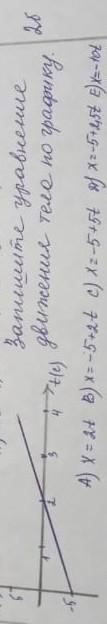 Запишите уравнение
движения тела по графику.
2б
5
1 2 3 4 t(c)
-5
A) x = 2t B) x = -5+2t C) x = -5+5t Д) x = -5+2,5t E) x = -10t